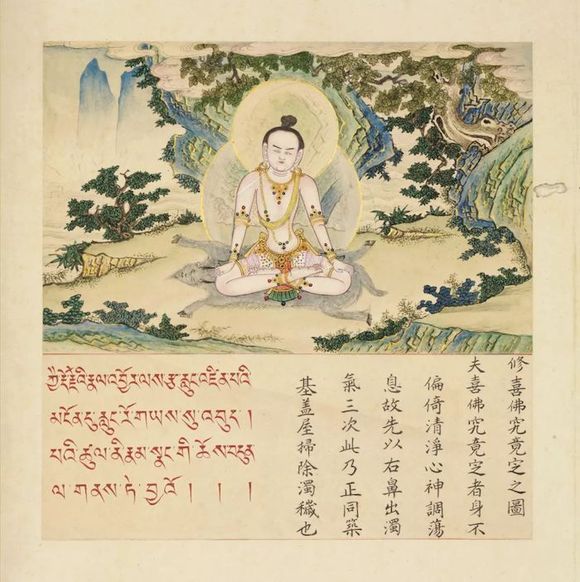 ཀྱེ་རྡོ་རྗེའི་རྣལ་འབྱོར་ལས་རྩ་རླུང་འཛིན་པའི་
མངོན་དུ་རླུང་རོ་གཡས་སུ་འབུད །
པའི་ཚུལ་ནི་རྣམ་སྣང་གི་ཆོས་བདུན་
ལ་གནས་ཏེ་བྱའོ ། ། །
修喜佛究竟定之圖
夫喜佛究竟定者身不
偏倚清淨心神調蕩
息故先以右鼻出濁
氣三次此乃正同築
基盖屋掃除濁穢也